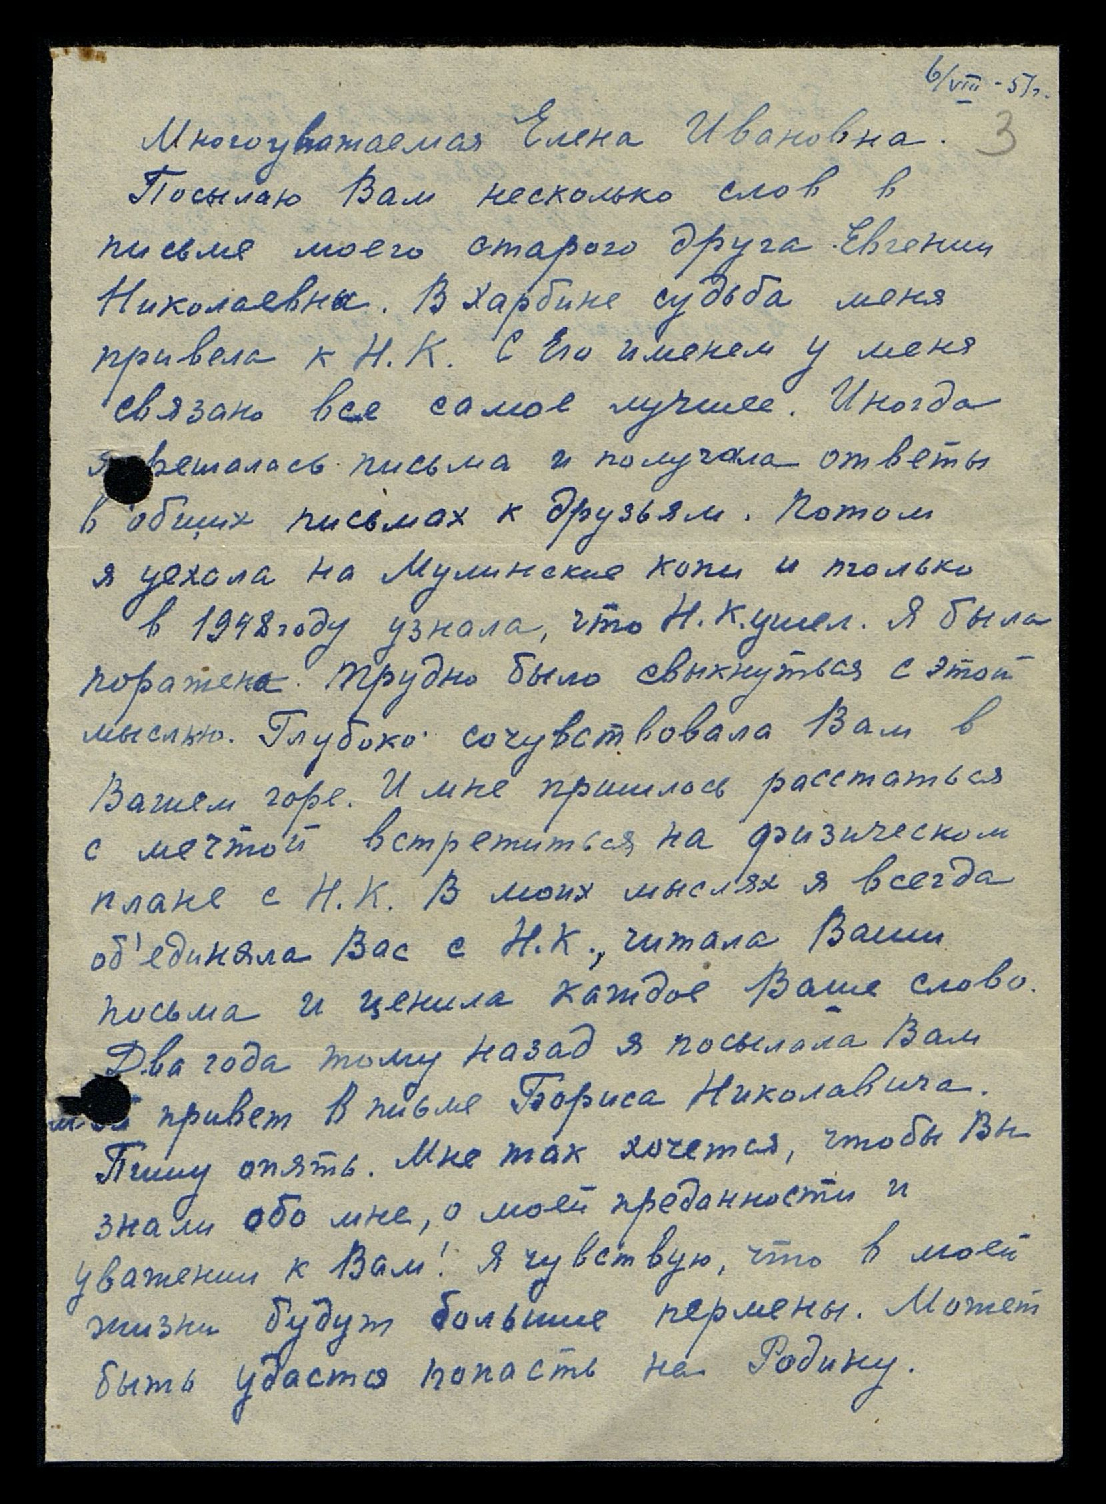 6/VIII - 57г.
3
Многоуважаемая Елена Ивановна.
Посылаю Вам несколько слов в
письме моего старого друга Евгении
Николаевны. В Харбине судьба меня
привела к Н.К. С Его именем у меня
связано все самое лучшее. Иногда
я решалась письма и получала ответы
в общих письмах к друзьям. Потом
я уехала на Мулинские копи и только
в 1948 году узнала, что Н.К. ушел. Я была
поражена. Трудно было свыкнуться с этой
мыслью. Глубоко сочувствовала Вам в
Вашем горе. И мне пришлось расстаться
с мечтой встретиться на физическом
плане с Н.К. В моих мыслях я всегда
об'единяла Вас с Н.К., читала Ваши
посьма и ценила каждое Ваше слово.
Два года тому назад я посылала Вам
мой привет в письме Бориса Николавича.
Пишу опять. Мне так хочется, чтобы Вы
знали обо мне, о моей преданности и
уважении к Вам! Я чувствую, что в моей
жизни будут большие пермены. Может
быть удастся попасть на Родину.